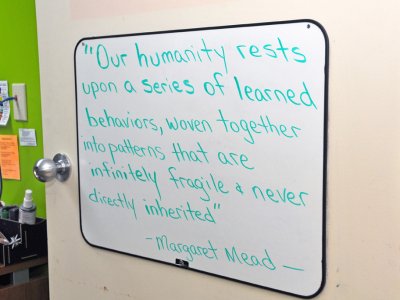 "Our humanity rests
upon a series of learned
behaviors, woven together
into patterns that are
infinitely fragile & never
directly inherited"
-Margaret Mead-